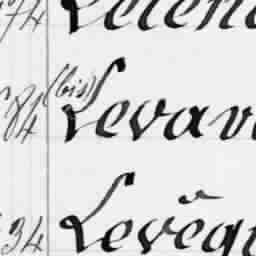 74 Lelen
84 (bis) Levav
34 Levêq